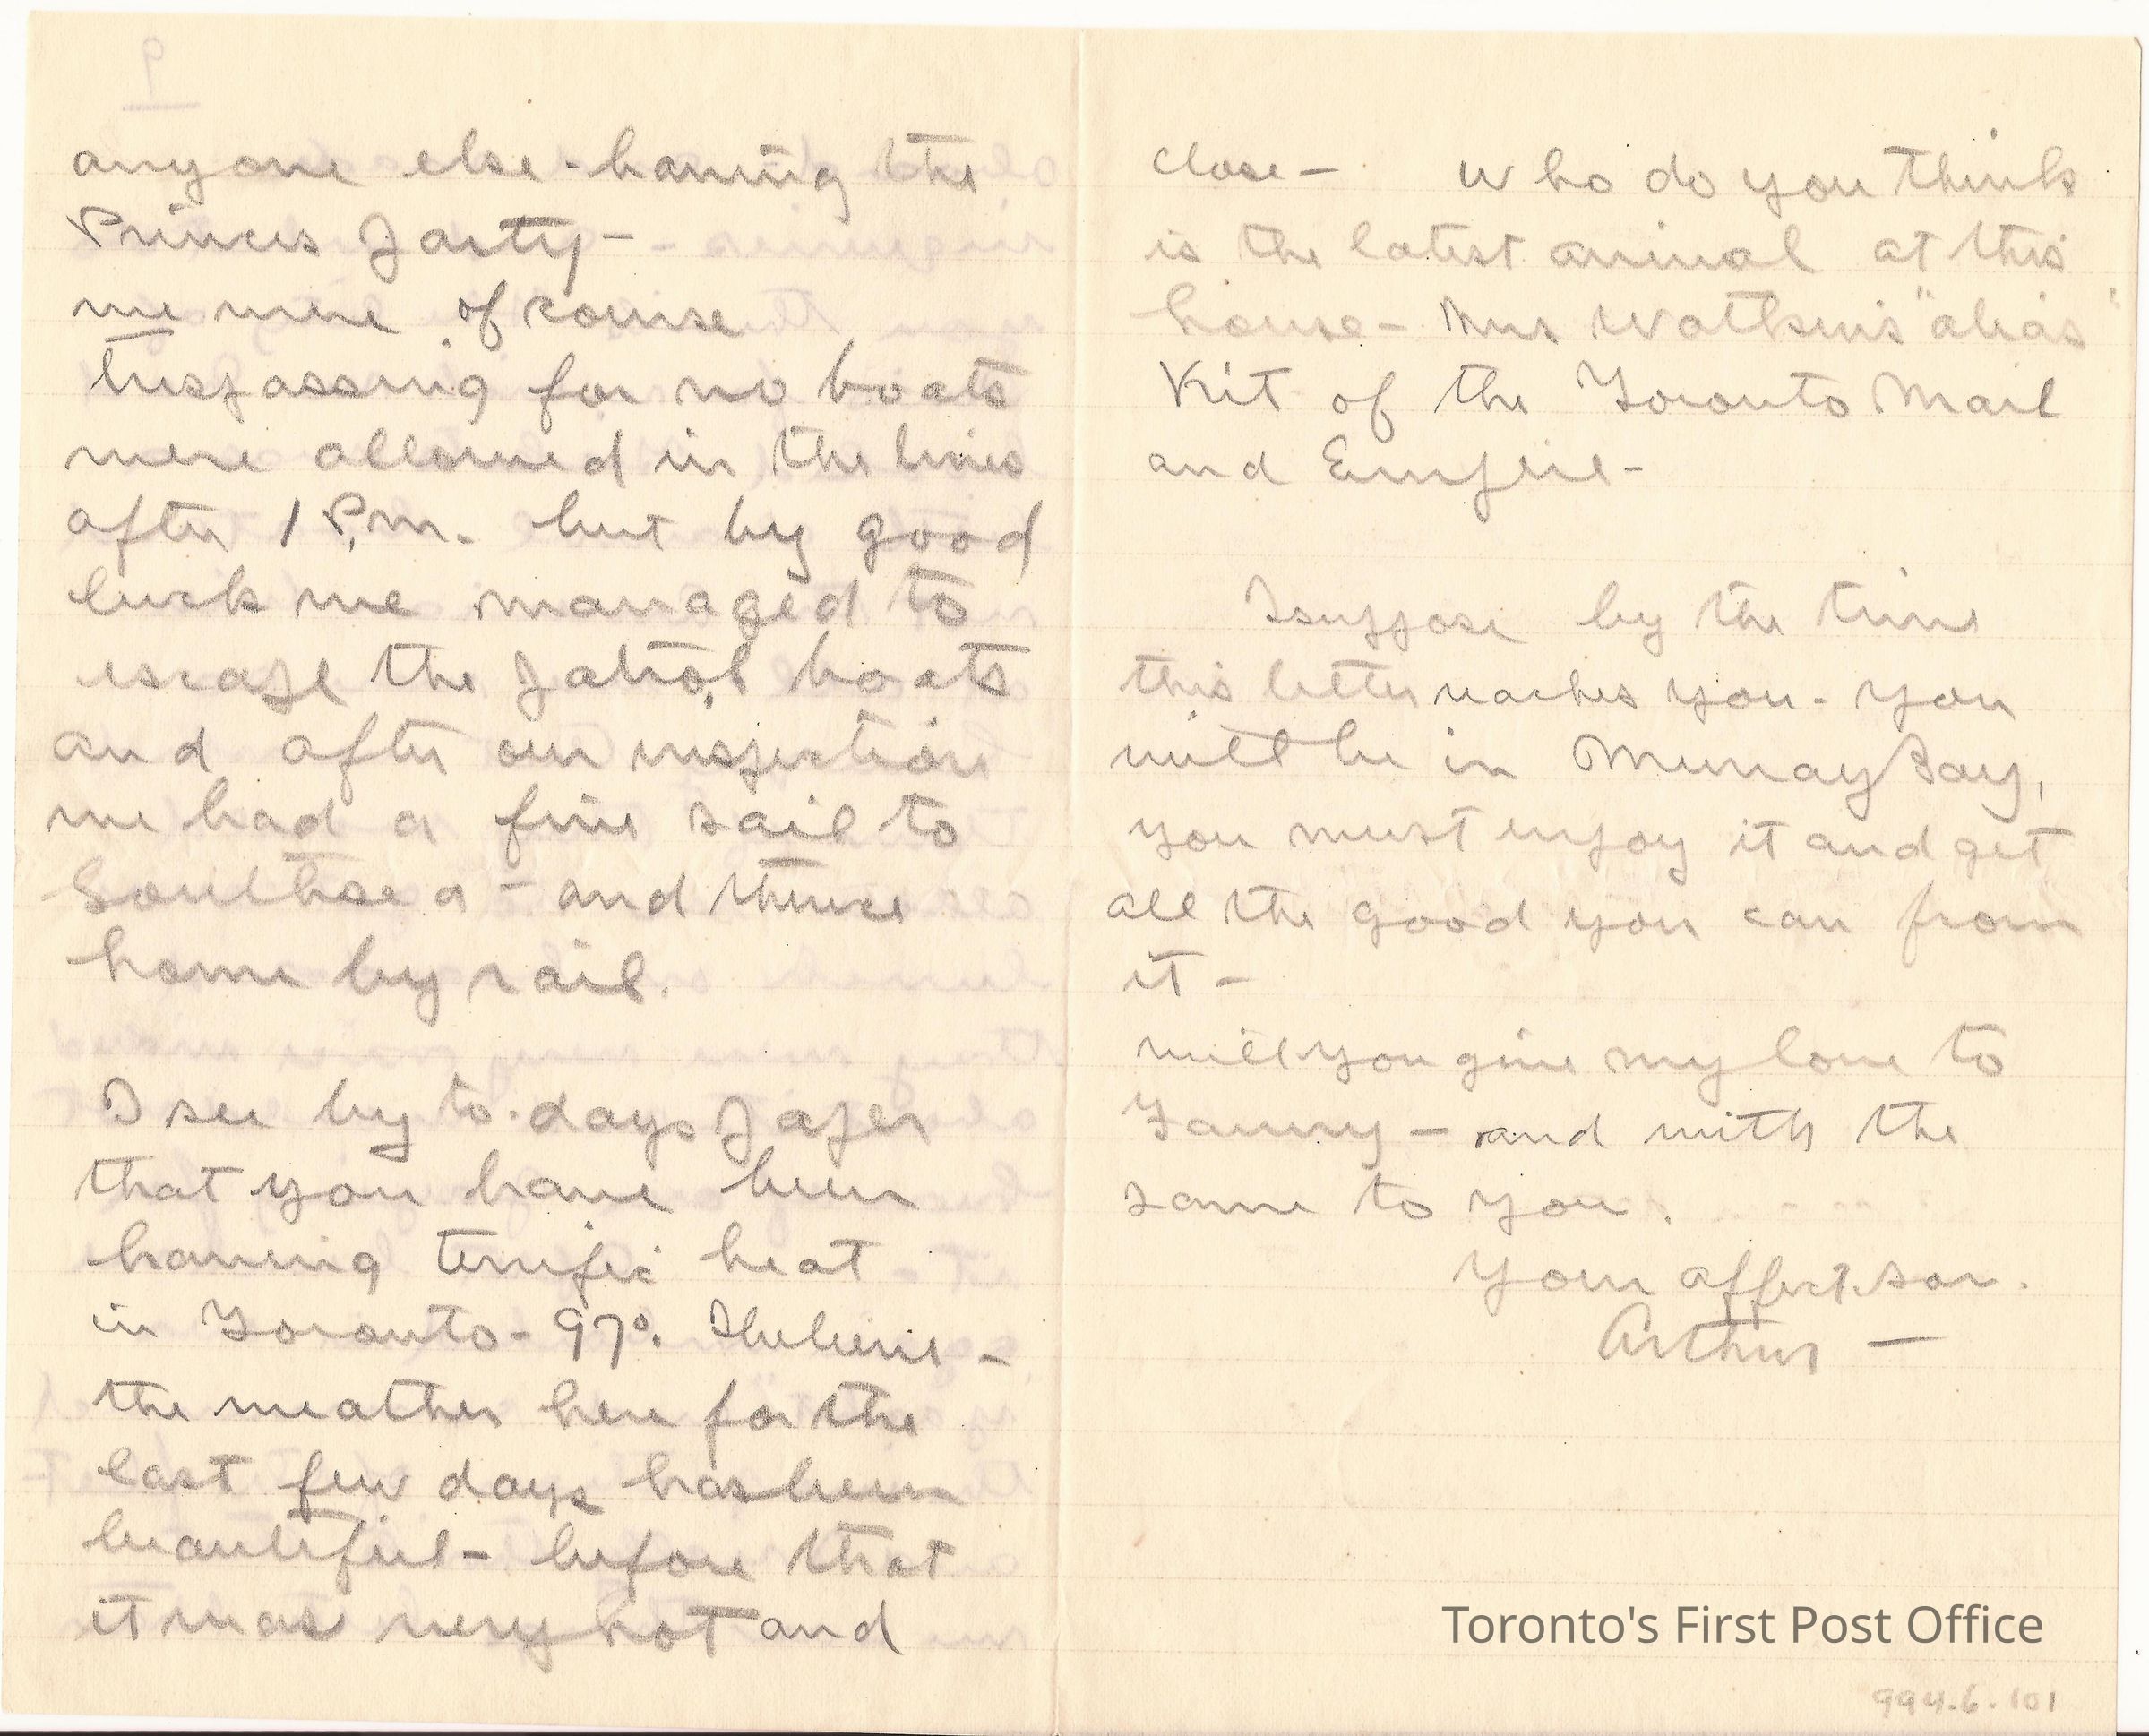 anyone else - having the
Princes Party -
we were of course
trespassing for no boats
were allowed in the lines
after 1 P.m. but by good
luck we managed to
escape the patrol boats
and after our inspection
we had a fine sail to
Southsea - and thence
home by rail.
I see by to-days paper
that you have been
having terrific heat
in Toronto - 97°. I believe -
the weather here for the
last few days has been
beautiful - before that
it was very hot and
close - Who do you think
is the latest arrival at this
house - Mrs Watkins "alias"
Kit of the Toronto Mail
and Empire -
I suppose by the time
this letter reaches you - you
will be in Murray Bay,
you must enjoy it and get
all the good you can from
it -
will you give my love to
Fanny - and with the
same to you.
Your affect. son.
Arthur -
Toronto's First Post Office
994.6.101